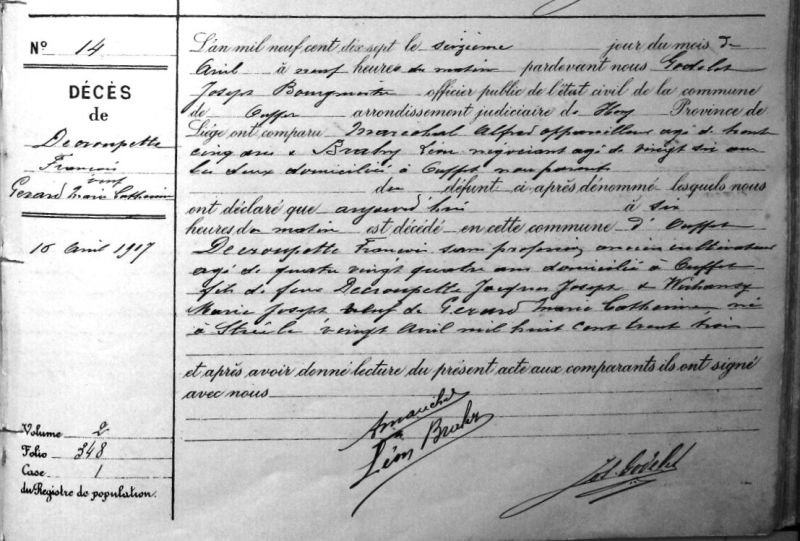 Nº 14
DÉCÈS
de
Decroupette
François
veuf
Gerard Marie Catherine
16 Avril 1917
Volume 2
Folio 348
Case 1
du Registre de population.
L'an mil neuf cent dix sept le seizième jour du mois d'
Avril à neuf heures du matin pardevant nous Godelet
Joseph Bourgmestre officier public de l'état civil de la commune
de Ouffet arrondissement judiciaire de Huy Province de
Liége ont comparu Marechal Alfred appareilleur agé de trente
cinq ans & Léon négociant agé de vingt six ans
les deux domiciliés à Ouffet non parents
du défunt ci après dénommé lesquels nous
ont déclaré que aujourd'hui à six
heures du matin est décédé en cette commune d'Ouffet
Decroupette François sans profession ancien cultivateur
agé de quatre vingt quatre ans domicilié à Ouffet
fils de feus Decroupette Jacques Joseph &
Marie Joseph veuf de Gerard Marie Catherine né
à Strée le vingt Avril mil huit cent trent trois
et après avoir donné lecture du présent acte aux comparants ils ont signé
avec nous
Léon
Jos. Godelet